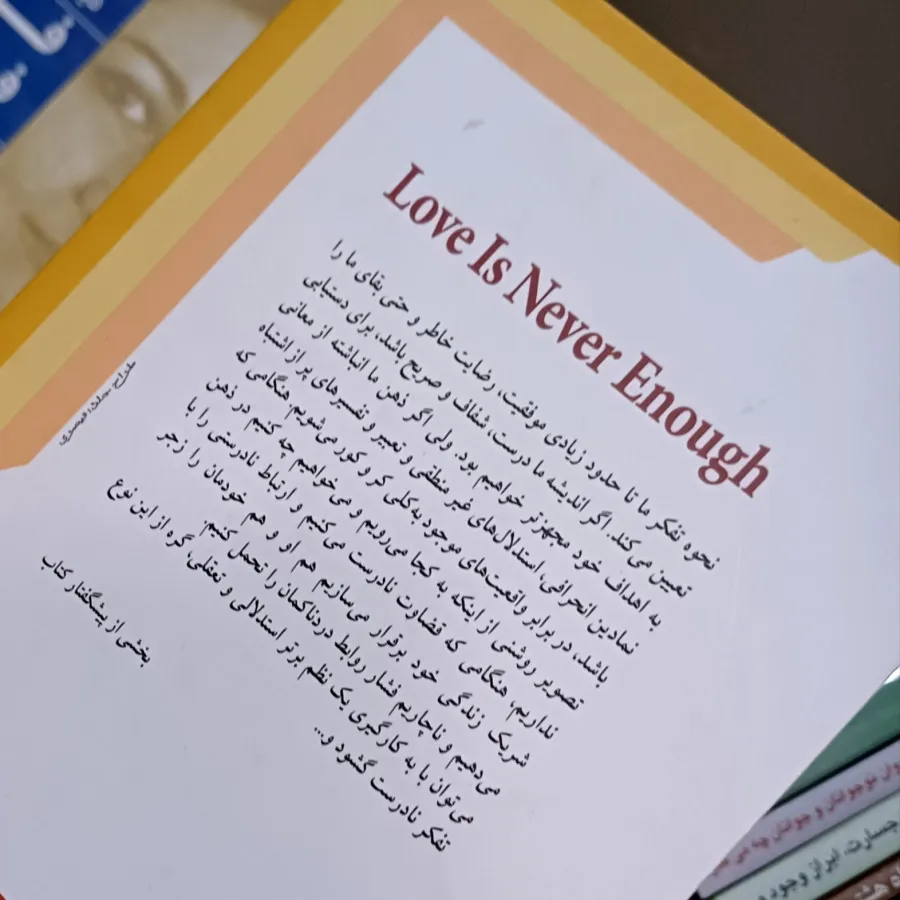 Love Is Never Enough
نحوه تفکر ما تا حدود زیادی موفقیت، رضایت خاطر و حتی بقای ما را
تعیین می‌کند. اگر اندیشه ما درست، شفاف و صریح باشد، برای دستیابی
به اهداف خود مجهزتر خواهیم بود. ولی اگر ذهن ما انباشته از معانی
نمادین انحرافی، استدلال‌های غیر منطقی و تعبیر و تفسیرهای پر از اشتباه
باشد، در برابر واقعیت‌های موجود به کلی کر و کور می‌شویم. هنگامی که
تصویر روشنی از اینکه به کجا می‌رویم و می‌خواهیم چه کنیم در ذهن
نداریم، هنگامی که قضاوت نادرست می‌کنیم و ارتباط نادرستی را با
شریک زندگی خود برقرار می‌سازیم هم او و هم خودمان را زجر
می‌دهیم و ناچاریم فشار روابط دردناکمان را تحمل کنیم.
می‌توان با به کارگیری یک نظم برتر استدلالی و تعقلی، گره از این نوع
تفکر نادرست گشود و...
بخشی از پیشگفتار کتاب
طراح جلد:
نوجوانان و جوانان چه می
جسارت، ابراز وجود